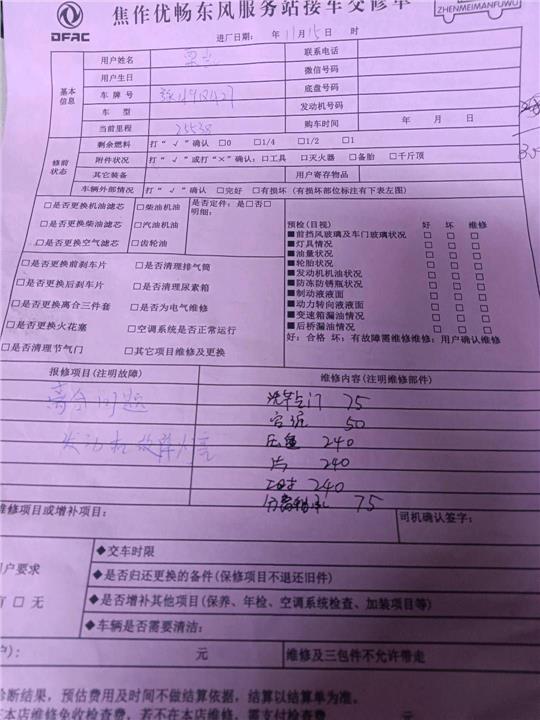 DFAC
焦作优畅东风服务站接车交修单
ZHENMEIMANFUWU
进厂日期： 年 11月 15日 时
基本信息
用户姓名 联系电话
用户生日 微信号码
车牌号 底盘号码
车型 发动机号码
当前里程 25538 购车时间 年 月 日
修前状态
剩余燃料 打“√”确认 □0 □1/4 □1/2 □1
附件状况 打“√”或打“×”确认：□工具 □灭火器 □备胎 □千斤顶
其它装备 用户寄存物品
车辆外部情况 打“√”确认 □完好 □有损坏（有损坏部位标注有下表左图）
□是否更换机油滤芯 □柴油机油 是否定件：是□否□
明细：
□是否更换柴油滤芯 □汽油机油
□是否更换空气滤芯 □齿轮油
□是否更换前刹车片 □是否清理排气筒
□是否更换后刹车片 □是否清理尿素箱
□是否更换离合三件套 □是否为电气维修
□是否更换火花塞 □空调系统是否正常运行
□是否清理节气门 □其它项目维修及更换
预检(目视) 好 坏 维修
■前挡风玻璃及车门玻璃状况 □ □ □
■灯具情况 □ □ □
■油量状况 □ □ □
■轮胎状况 □ □ □
■发动机机油状况 □ □ □
■防冻防锈瓶状况 □ □ □
■制动液液面 □ □ □
■动力转向液液面 □ □ □
■变速箱漏油情况 □ □ □
■后桥漏油情况 □ □ □
好：合格 坏：有故障需维修维修：用户确认维修
报修项目(注明故障) 维修内容(注明维修部件)
离合问题
发动机故障灯亮
75
50
压盘 240
片 240
工时 240
分离轴承 75
维修项目或增补项目： 司机确认签字：
户要求
有 □ 无
◆交车时限
◆是否归还更换的备件(保修项目不退还旧件)
◆是否增补其他项目(保养、年检、空调系统检查、加装项目等)
◆车辆是否需要清洁：
户)： 元 维修及三包件不允许带走
诊断结果，预估费用及时间不做结算依据，结算以结算单为准。
在本店维修免收检查费，若不在本店维修，需支付检查费 元